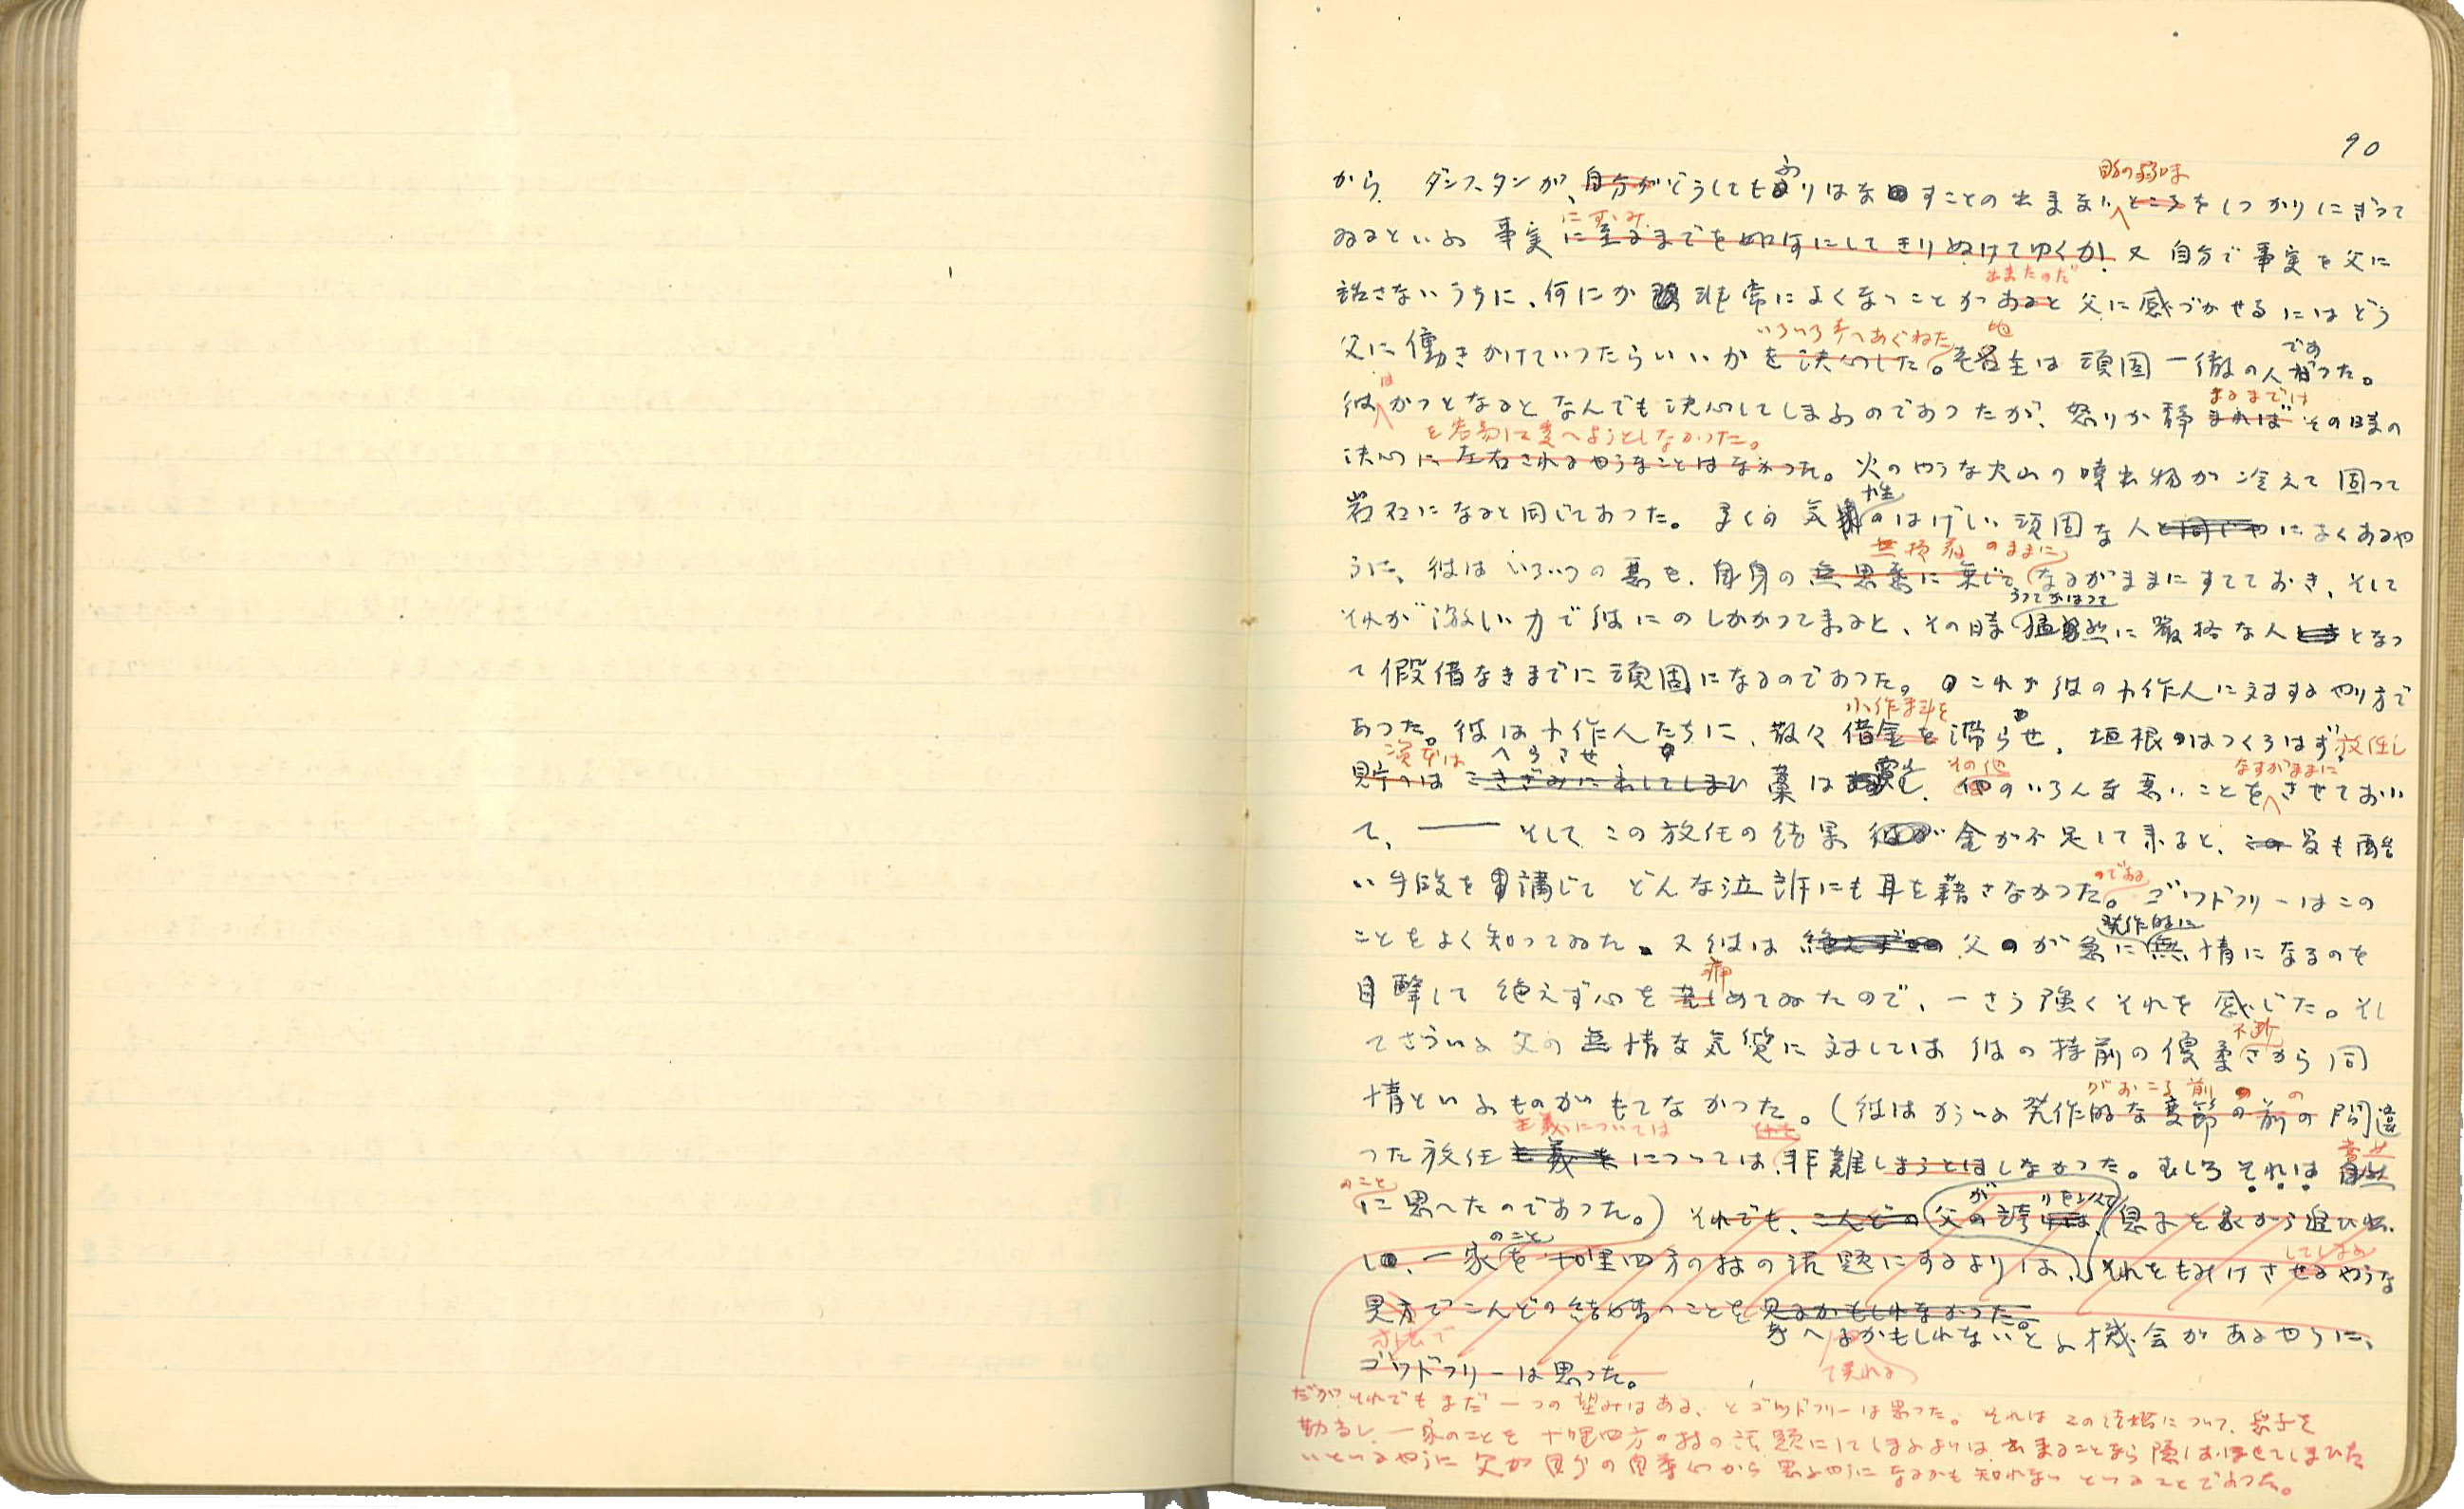 90
から、ダンスタンが、自分がどうしてもふりはなすことの出来ないところをしつかりにぎつて
自分の弱味
ゐるといふ事実に至るまでを如何にしてきりぬけてゆくか、又自分で事実を父に
にすゝみ
話さないうちに、何にか非常によくないことがあると父に感づかせるにはどう
出来たのだ
父に働きかけていつたらいいかを決心した。老地主は頑固一徹の人であつた。
いろいろ考へあぐねた
彼はかつとなるとなんでも決心してしまふのであつたが、怒りが静まればその時の
まるまでは
決心に左右されるやうなことはなかつた。火のやうな火山の噴出物が冷えて固つて
を容易に変へようとしなかつた。
岩石になると同じであつた。多くの気性のはげしい頑固な人と同じやによくあるや
うに、彼はいろいろの悪を、自身の無思慮に乗じて、なるがままにすてておき、そして
無頓着のままに
それが激しい力で彼にのしかかつて来ると、その時猛然に厳格な人となつ
うつてかはつて
て假借なきまでに頑固になるのであつた。これが彼の小作人に対するやり方で
あつた。彼は小作人たちに、散々借金を滞らせ、垣根はつくろはず、放任し
小作料を
貯へはこきざみにわしてしまひ藁は売り、他のいろんな悪いことをさせておい
資本は
へらさせ
その他
なすがままに
て、――そしてこの放任の結果彼が金が不足して来ると、この最も酷
い手段を講じてどんな泣訴にも耳を藉さなかつた。ゴツドフリーはこの
のである
ことをよく知つてゐた。又彼は絶えず父が急に無情になるのを
発作的に
目撃して絶えず心を苦しめてゐたので、一さう強くそれを感じた。そし
痛
てさういふ父の無情な気質に対しては彼の持前の優柔さから同
不断
情といふものがもてなかつた。(彼はかういふ発作的な変節の前の間違
がおこる前の
つた放任主義をについては、非難しようとはしなかつた。むしろそれは当然
主義については
に思へたのであつた。)それでも、こんどの父の誇りは、息子を家から追ひ出
のこと
し、一家を十哩四方の村の話題にするよりは、それをもみけさせるやうな
のこと
してしまふ
見方でこんどの結婚のことを見るかもしれなかつた。
方法で
考へるかもしれないといふ機会があるやうに、
て呉れる
ゴツドフリーは思つた。
だが、それでもまだ一つの望みはある、とゴツドフリーは思つた。それはこの結婚について、息子を
勘当し、一家のことを十哩四方の村の話題にしてしまふよりは出来ることなら隠しおほせてしまひた
いといふやうに父が自分の自尊心から思ふやうになるかも知れないといふことであつた。